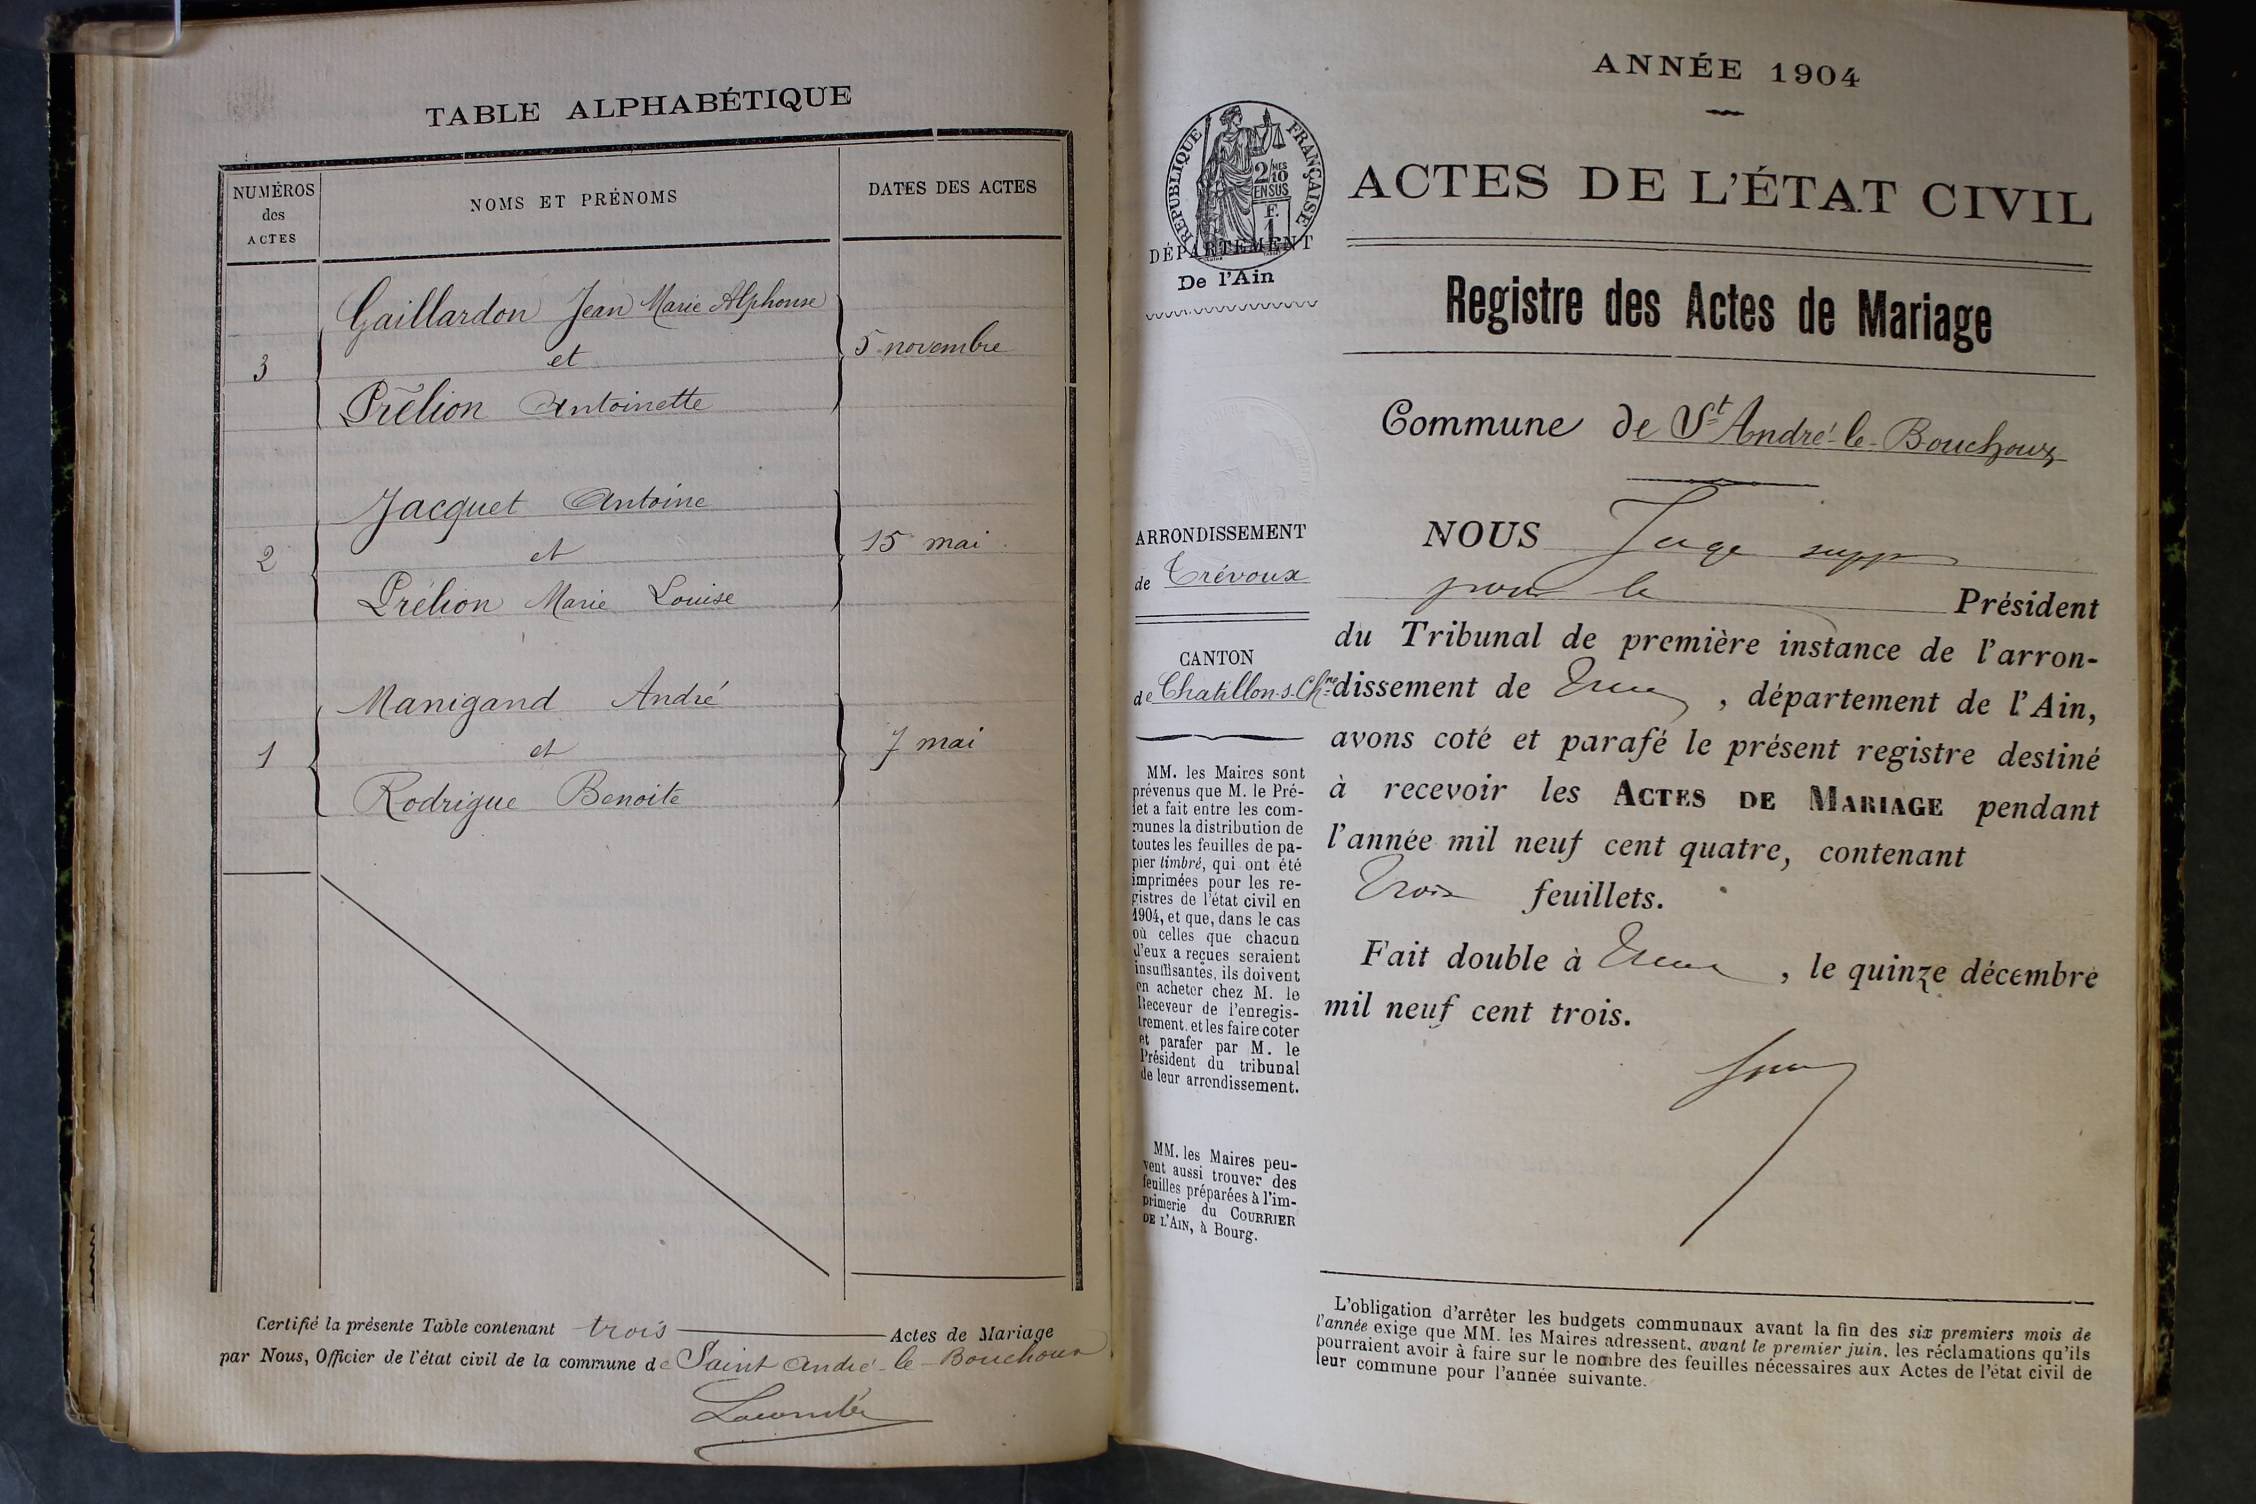 TABLE ALPHABÉTIQUE
NUMÉROS
des
ACTES
NOMS ET PRÉNOMS
DATES DES ACTES
Gaillardon Jean Marie Alphonse
et
3
5 novembre
Prélion Antoinette
Jacquet Antoine
et
2
15 mai
Prélion Marie Louise
Manigand André
et
1
7 mai
Rodrigue Benoite
Certifié la présente Table contenant trois Actes de Mariage
par Nous, Officier de l'état civil de la commune de Saint André-le-Bouchoux
ANNÉE 1904
RÉPUBLIQUE FRANÇAISE
2/10
MES
EN SUS
F.
1
DÉPARTEMENT
De l'Ain
ACTES DE L'ÉTAT CIVIL
Registre des Actes de Mariage
Commune de St André-le-Bouchoux
ARRONDISSEMENT
de Trévoux
CANTON
de Chatillon-s-Chne
MM. les Maires sont
prévenus que M. le Pré-
fet a fait entre les com-
munes la distribution de
toutes les feuilles de pa-
pier timbré, qui ont été
imprimées pour les re-
gistres de l'état civil en
1904, et que, dans le cas
où celles que chacun
d'eux a reçues seraient
insuffisantes, ils doivent
en acheter chez M. le
Receveur de l'enregis-
trement, et les faire coter
et parafer par M. le
Président du tribunal
de leur arrondissement.
MM. les Maires peu-
vent aussi trouver des
feuilles préparées à l'im-
primerie du COURRIER
DE L'AIN, à Bourg.
NOUS Juge supp
pour le Président
du Tribunal de première instance de l'arron-
dissement de , département de l'Ain,
avons coté et parafé le présent registre destiné
à recevoir les ACTES DE MARIAGE pendant
l'année mil neuf cent quatre, contenant
Trois feuillets.
Fait double à , le quinze décembre
mil neuf cent trois.
L'obligation d'arrêter les budgets communaux avant la fin des six premiers mois de
l'année exige que MM. les Maires adressent, avant le premier juin, les réclamations qu'ils
pourraient avoir à faire sur le nombre des feuilles nécessaires aux Actes de l'état civil de
leur commune pour l'année suivante.